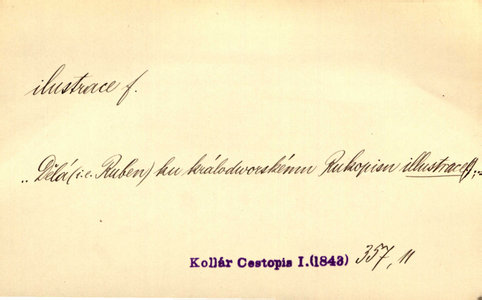 ilustrace f.
„Dělá (i.e. Ruben) ku králodworskému Rukopisu illustrace;"
Kollár Cestopis I.(1843) 357, 11